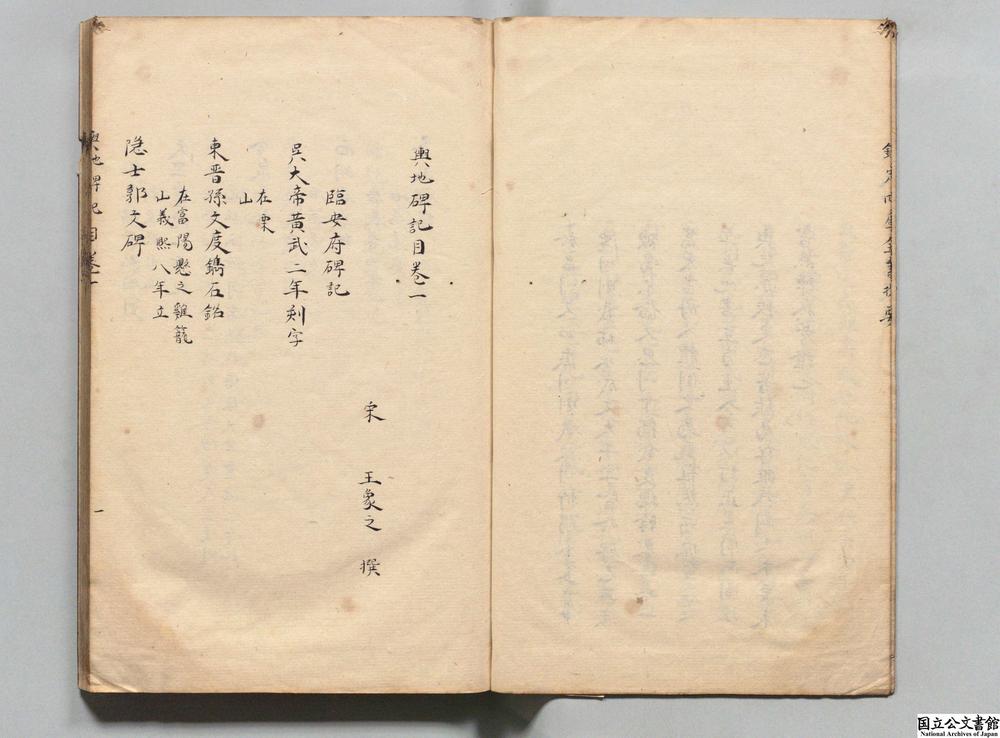 欽定四庫全書提要
輿地碑記目卷一
宋 王象之 撰
臨安府碑記
吳大帝黃武二年刻字
在栗
山
東晋孫文度鐫石銘
在富陽縣之雞籠
山義熙八年立
隱士郭文碑
輿地碑記目卷一
一
国立公文書館
National Archives of Japan